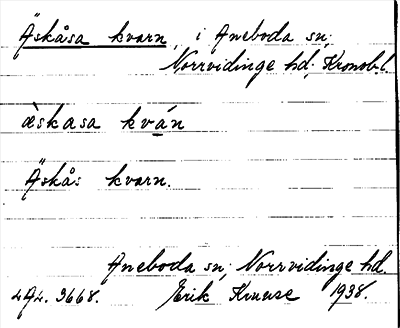 Äskåsa kvarn, i Aneboda sn;
Norrvidinge hd; Kronob.l.
äskasa kván
Äskås kvarn.
Aneboda sn; Norrvidinge hd.
Erik Kruuse 1938.